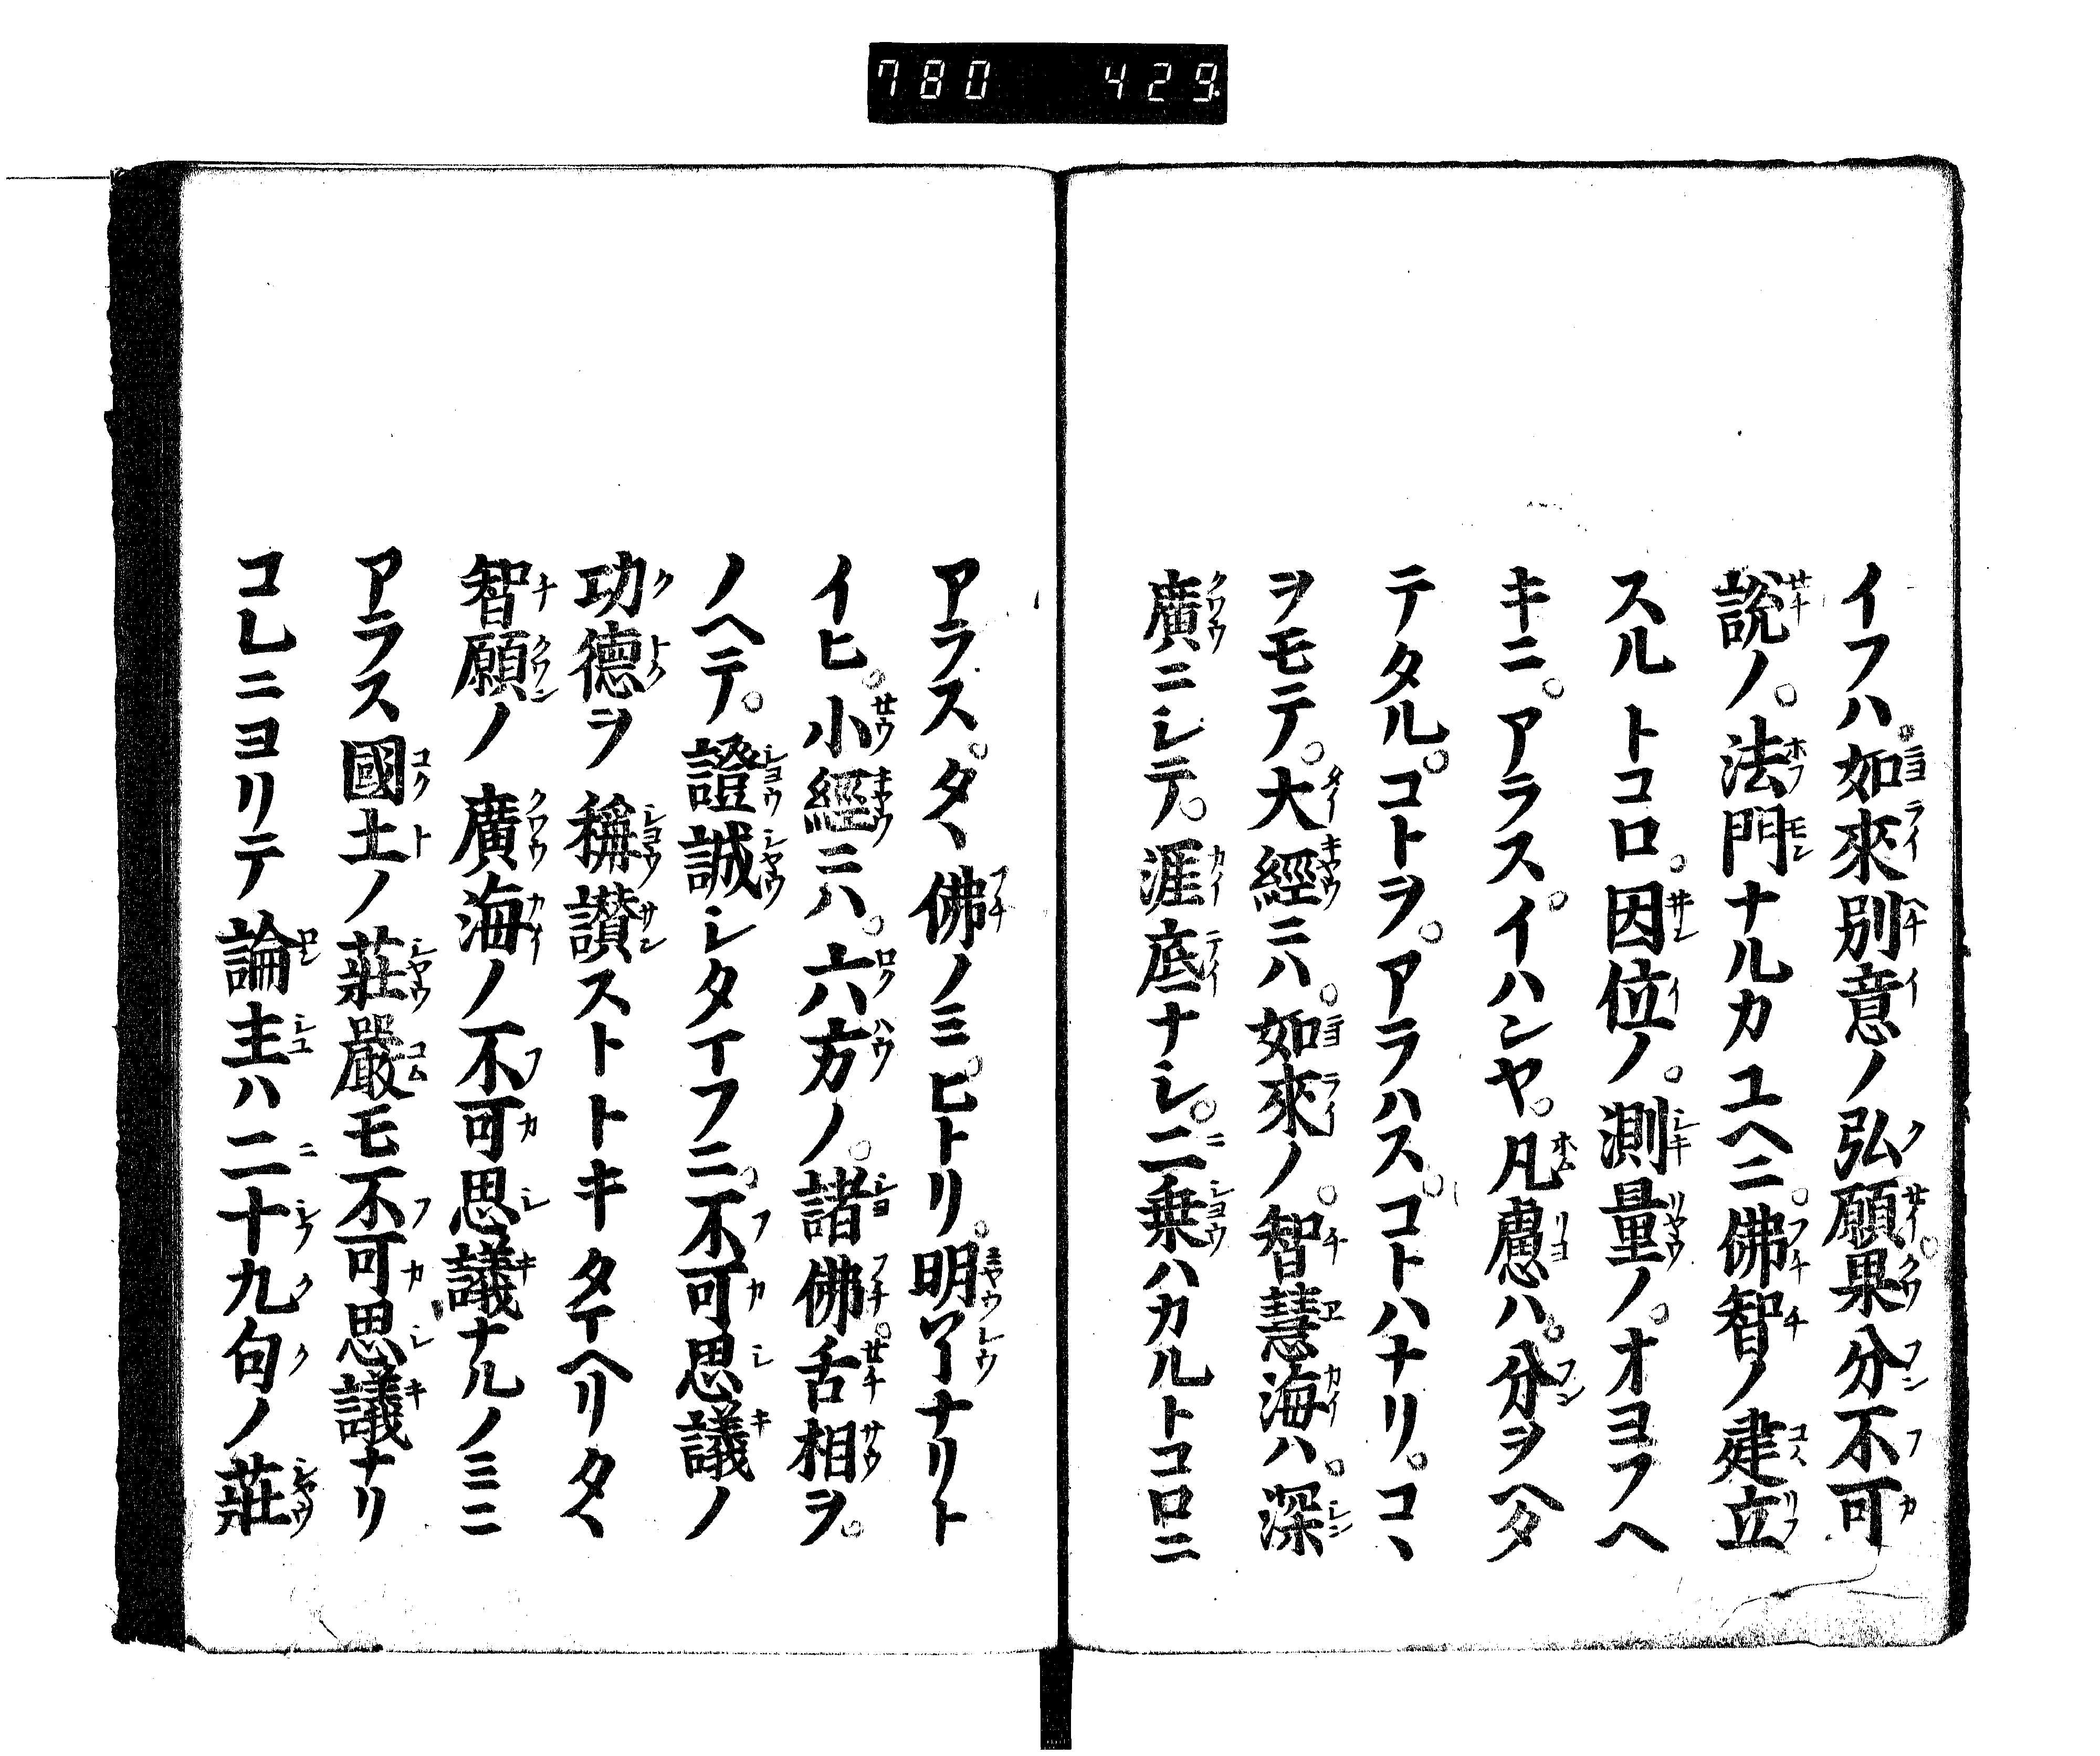 780 429
イフハ。如來別意ノ弘願。果分不可
説ノ。法門ナルカユヘニ。佛智ノ建立
スルトコロ。因位ノ。測量ノ。オヨフヘ
キニ。アラス。イハンヤ。凡慮ハ。分ヲヘタ
テタル。コトヲ。アラハス。コトハナリ。コヽ
ヲモテ。大經ニハ。如來ノ。智慧海ハ。深
廣ニシテ。涯底ナシ。二乗ハカルトコロニ
アラス。タヽ佛ノミ。ヒトリ。明了ナリト
イヒ。小經ニハ。六方ノ。諸佛。舌相ヲ。
ノヘテ。證誠シタマフニ。不可思議ノ
功德ヲ稱讃ストトキタマヘリタヽ
智願ノ廣海ノ不可思議ナルノミニ
アラス國土ノ莊嚴モ不可思議ナリ
コレニヨリテ論主ハ二十九句ノ莊